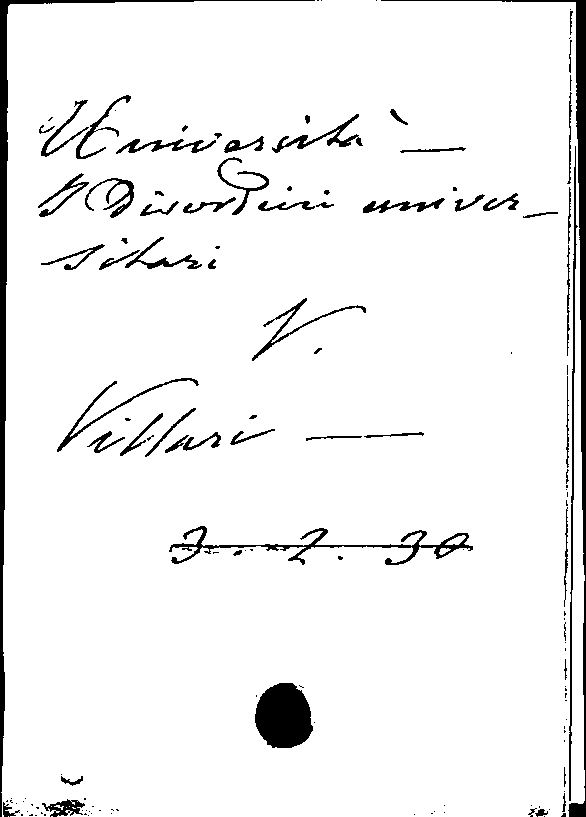 Università —
I Disordini univer-
sitari
V.
Villari —
3. 2. 30